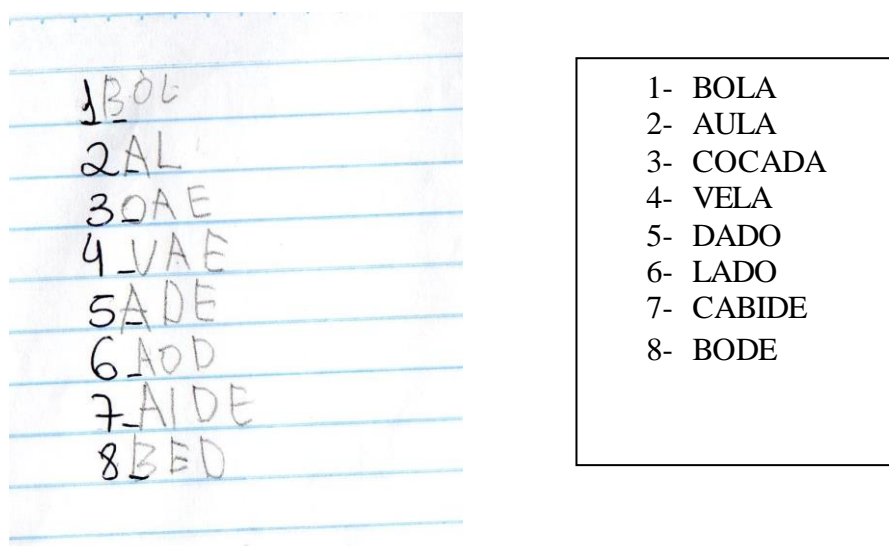 1 BOL
2 AL
3 OAE
4 - VAE
5 ADE
6 - AOD
7 - AIDE
8 BED
1- BOLA
2- AULA
3- COCADA
4- VELA
5- DADO
6- LADO
7- CABIDE
8- BODE